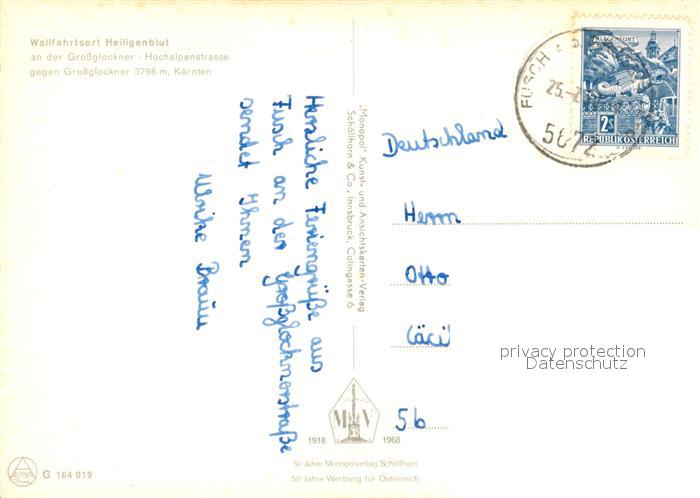 Wallfahrtsort Heiligenblut
an der Großglockner - Hochalpenstrasse
gegen Großglockner 3798 m, Kärnten
Herzliche Feriengrüße aus
Fusch an der Großglocknerstraße
sendet Ihnen
Ulrike Braun
„Monopol" Kunst- und Ansichtskarten-Verlag
Schöllhorn & Co., Innsbruck, Colingasse 6
KLAGENFURT
2S
REPUBLIK ÖSTERREICH
FUSCH A.
25.
5672
Deutschland
Herrn
Otto
Cäci
5b
privacy protection
Datenschutz
M V
1918 1968
50 Jahre Monopolverlag Schöllhorn
50 Jahre Werbung für Österreich
ALPINA
G 164 019